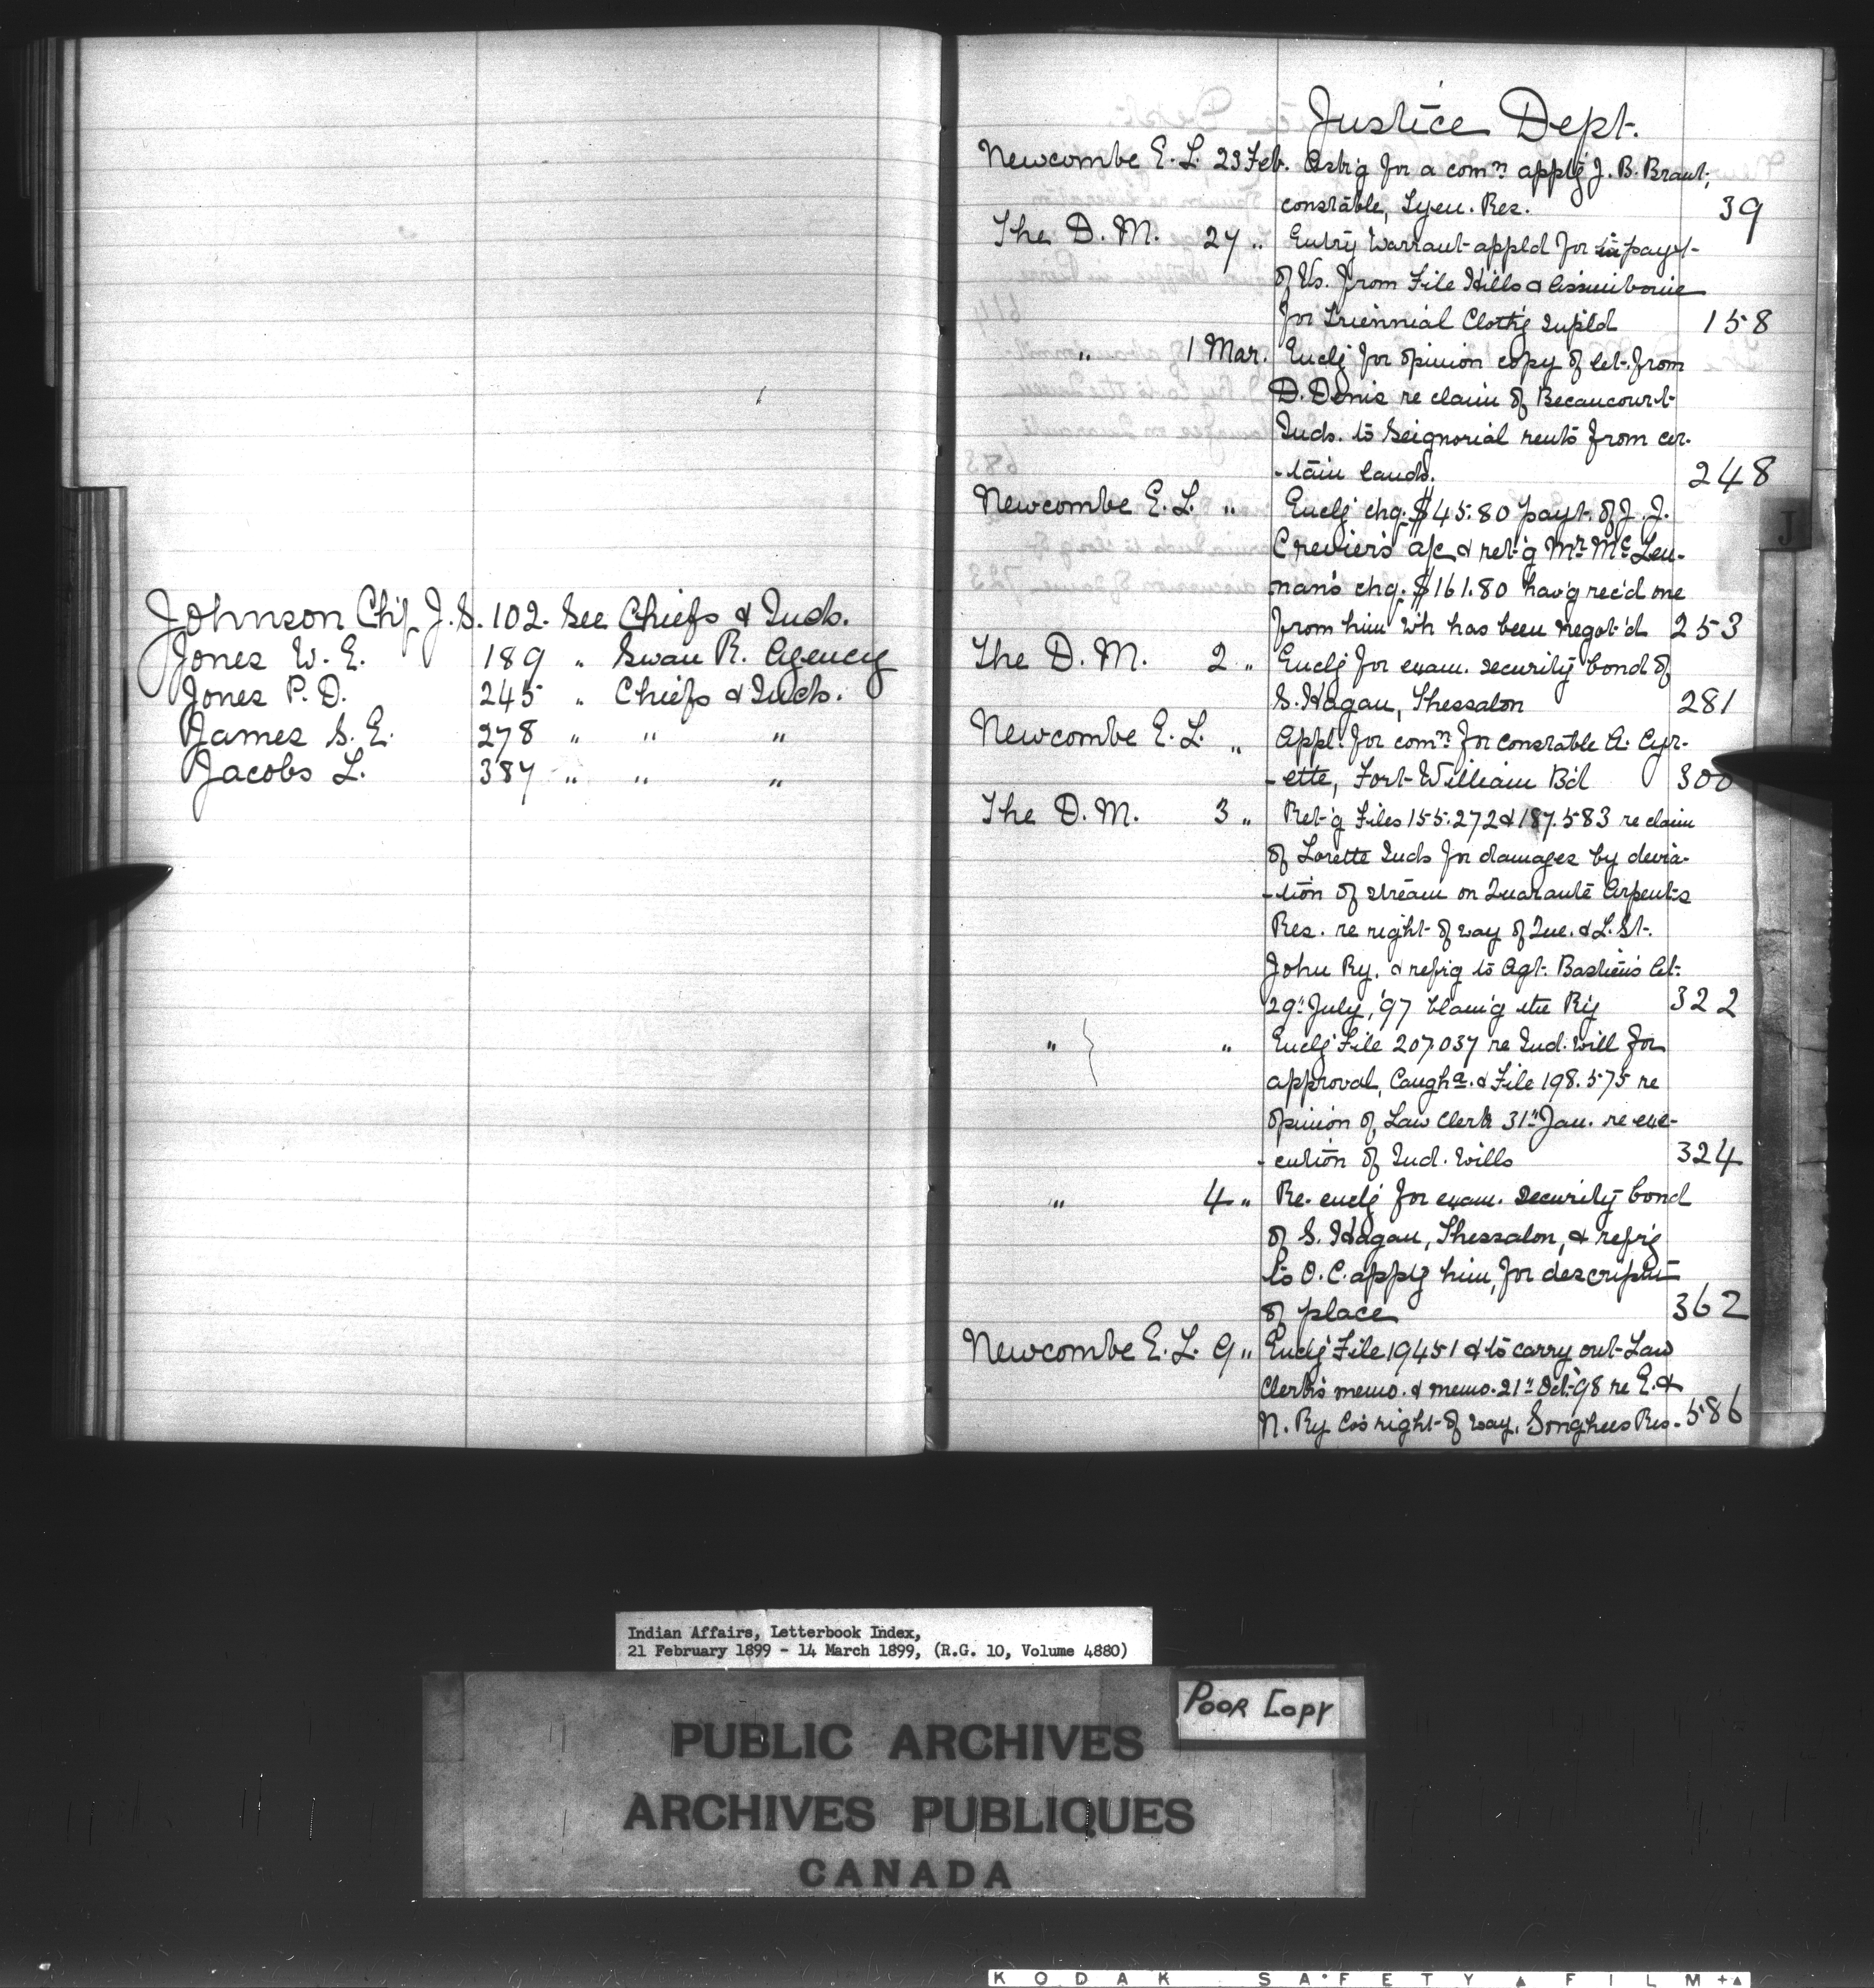 Johnson Chf J. S. 102. See Chiefs & Inds.
Jones W. E. 189 " Swan R. Agency
Jones P. D. 245 " Chiefs & Inds.
James S. E. 278 " " "
Jacobs L. 387 " " "
Justice Dept.
Newcombe E. L. 23 Feb. Ask'g for a com:n app'g J. B. Brant,
constable, Tyen. Res. 39
The D. M. 27 " Entry Warrant appld for in payt
of Vs. from File Hills & Assiniboine
for Triennial Cloth'g supld 158
" 1 Mar. Enclg for opinion copy of let. from
D. Denis re claim of Becancourt
Inds. to Seignorial rents from cer-
-tain lands. 248
Newcombe E. L. " Enclg chq. $45.80 payt. of J. J.
Crevier's a/c & ret'g Mr McLen-
nan's chq. $161.80 hav'g rec'd one
from him wh has been negot'd 253
The D. M. 2 " Enclg for exam. security bond of
S. Hagan, Thessalon 281
Newcombe E. L. " Appl. for com:n for constable A. Cyr-
-ette, Fort William Bd 300
The D. M. 3 " Ret'g Files 155.272 & 187.583 re claim
of Lorette Inds for damages by devia-
-tion of stream on Quarante Arpents
Res. re right of way of Que. & L. St.
John Ry. & refr'g to Agt. Bastien's let.
29" July, '97 blam'g the Ry 322
" " Enclg File 207.037 re Ind. will for
approval, Caugha. & File 198.575 re
opinion of Law Clerk 31" Jan. re exe-
-cution of Ind. wills 324
" 4 " Re-enclg for exam. security bond
of S. Hagan, Thessalon, & refr'g
to O. C. app'g him, for descript
of place 362
Newcombe E. L. 9 " Enclg File 19451 & to carry out Law
Clerk's memo. & memo. 21" Oct. '98 re E. &
N. Ry Co's right of way, Songhees Res. 586
J
Indian Affairs, Letterbook Index,
21 February 1899 - 14 March 1899, (R.G. 10, Volume 4880)
POOR COPY
PUBLIC ARCHIVES
ARCHIVES PUBLIQUES
CANADA
KODAK SAFETY FILM